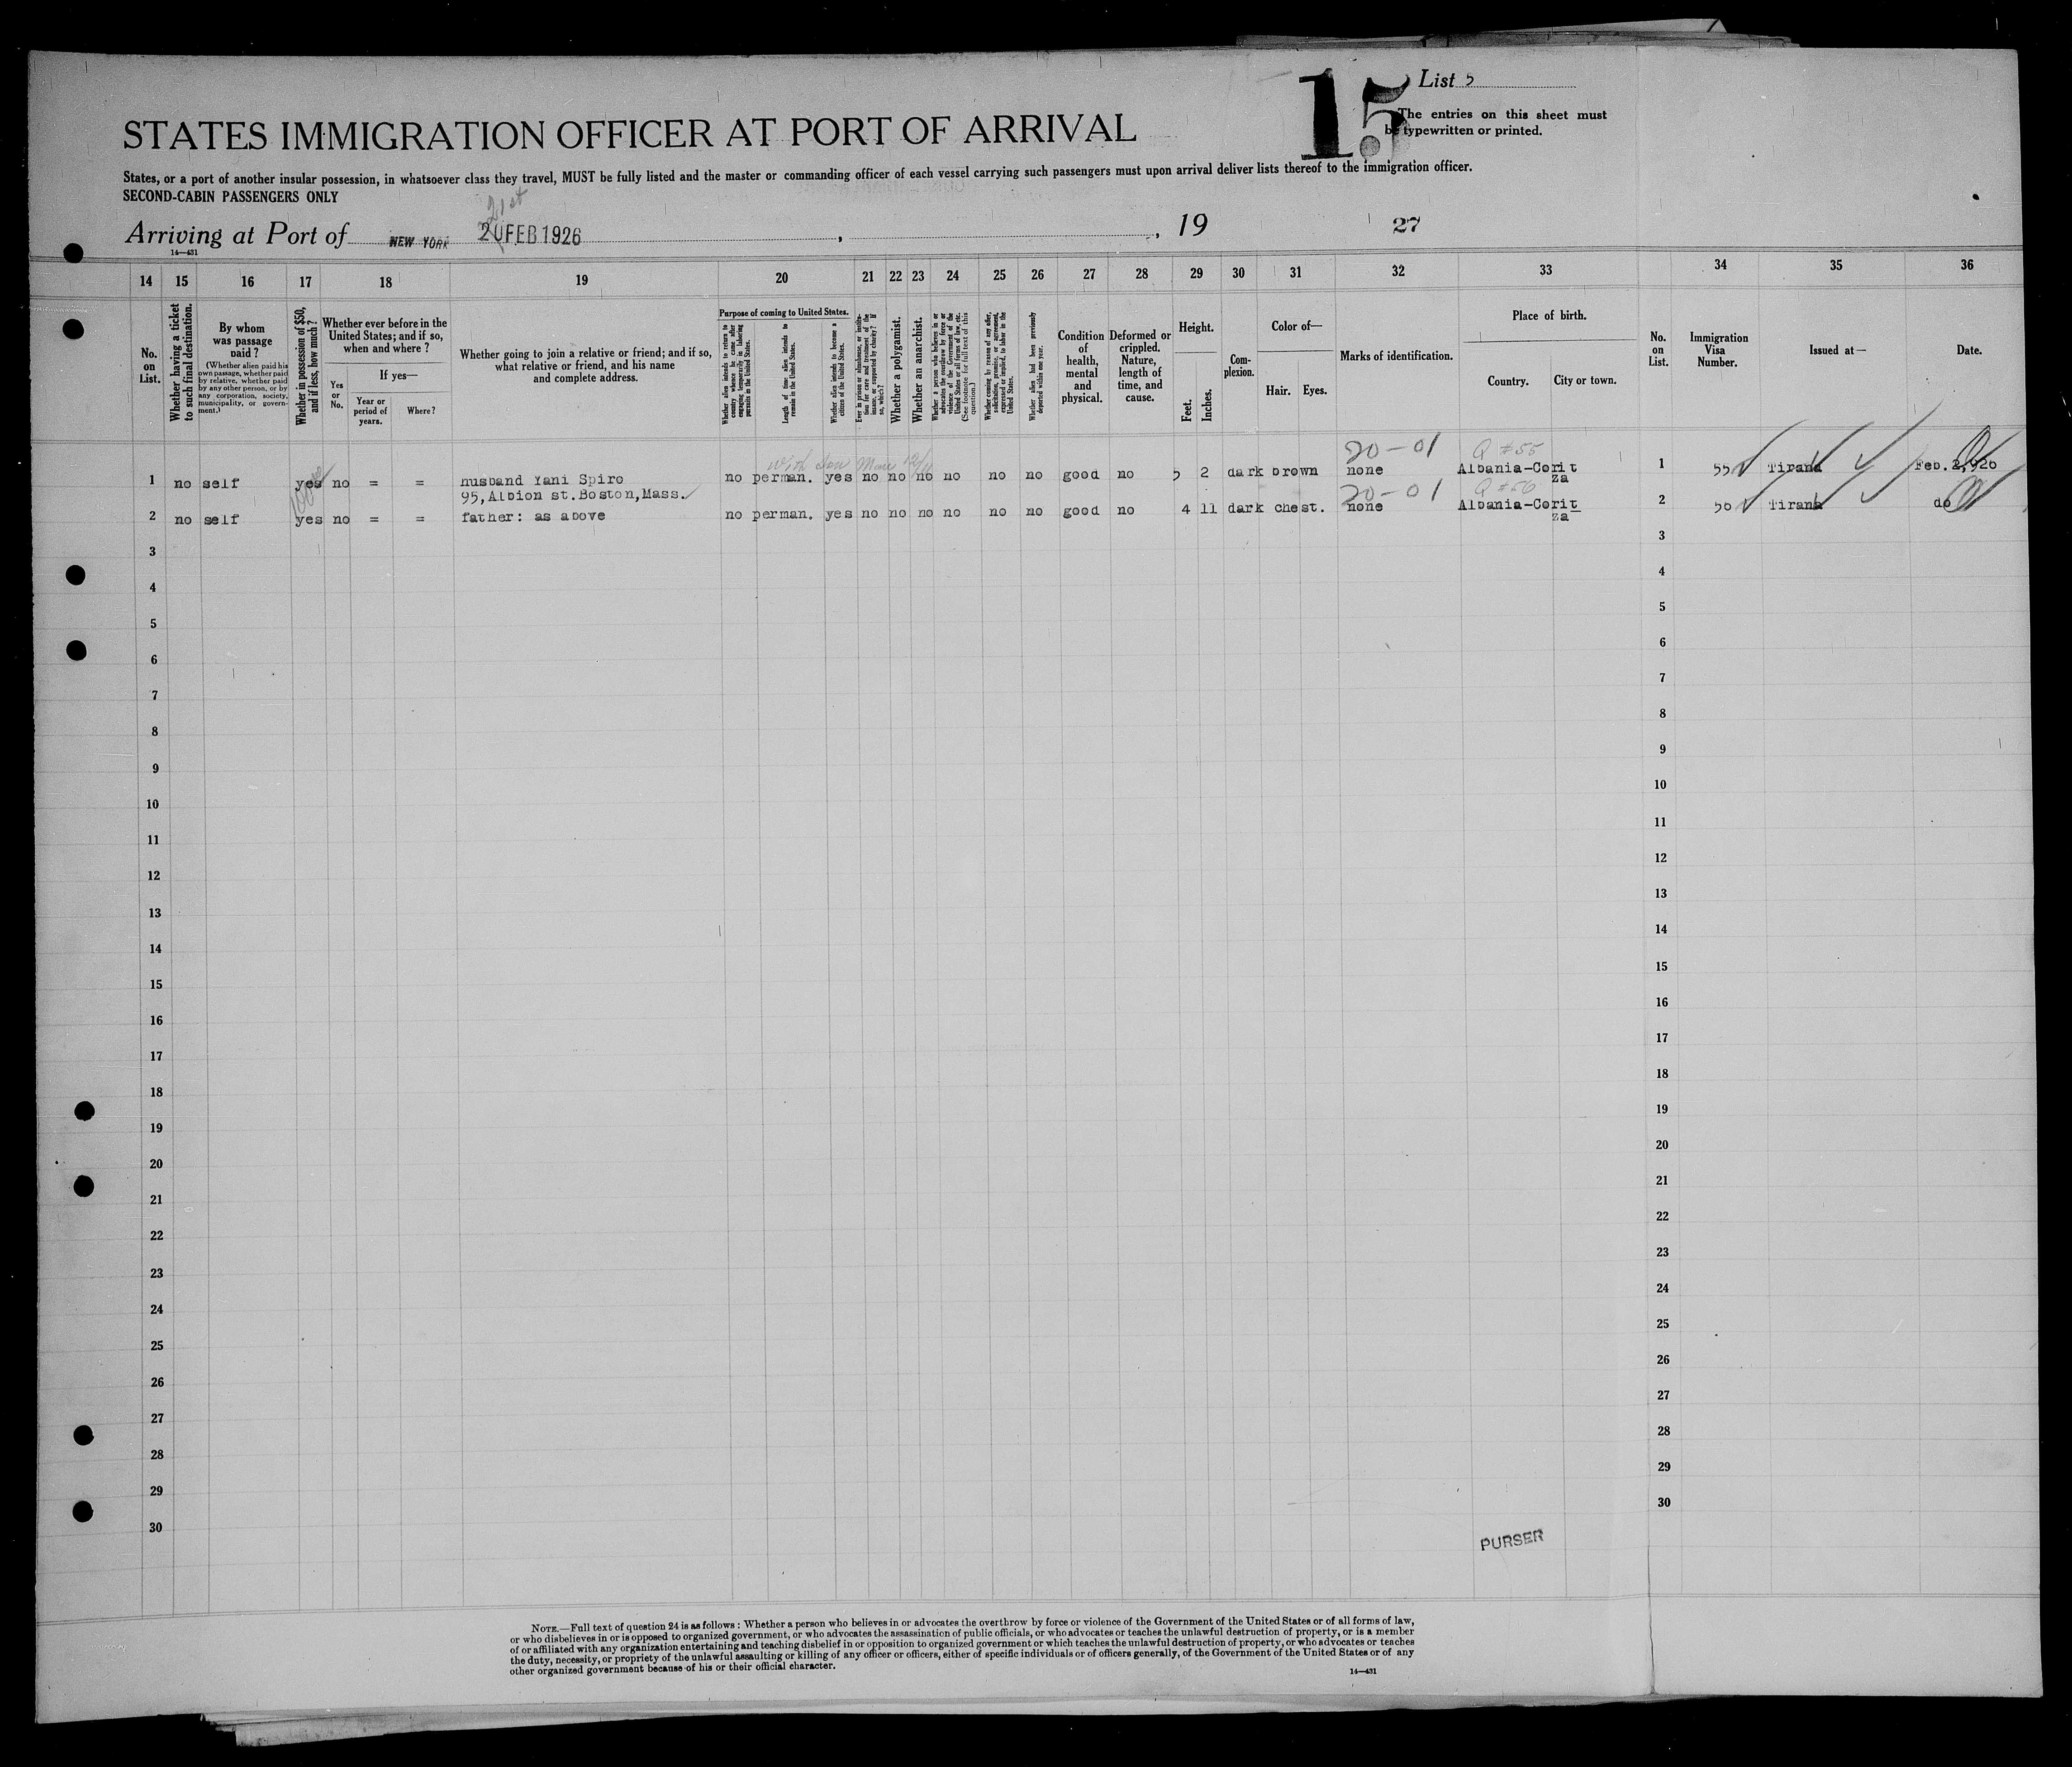 15
List 5
The entries on this sheet must
be typewritten or printed.
STATES IMMIGRATION OFFICER AT PORT OF ARRIVAL
States, or a port of another insular possession, in whatsoever class they travel, MUST be fully listed and the master or commanding officer of each vessel carrying such passengers must upon arrival deliver lists thereof to the immigration officer.
SECOND-CABIN PASSENGERS ONLY
21st
Arriving at Port of NEW YORK 20 FEB 1926 , , 19 27
14—431
14 15 16 17 18 19 20 21 22 23 24 25 26 27 28 29 30 31 32 33 34 35 36
No. on List.
Whether having a ticket to such final destination.
By whom was passage paid?
(Whether alien paid his own passage, whether paid by relative, whether paid by any other person, or by any corporation, society, municipality, or government.)
Whether in possession of $50, and if less, how much?
Whether ever before in the United States; and if so, when and where?
Yes or No.
If yes—
Year or period of years.
Where?
Whether going to join a relative or friend; and if so, what relative or friend, and his name and complete address.
Purpose of coming to United States.
Whether alien intends to return to country whence he came after engaging temporarily in laboring pursuits in the United States.
Length of time alien intends to remain in the United States.
Whether alien intends to become a citizen of the United States.
Ever in prison or almshouse, or institution for care and treatment of the insane, or supported by charity? If so, which?
Whether a polygamist.
Whether an anarchist.
Whether a person who believes in or advocates the overthrow by force or violence of the Government of the United States or all forms of law, etc. (See footnote for full text of this question.)
Whether coming by reason of any offer, solicitation, promise, or agreement, expressed or implied, to labor in the United States.
Whether alien had been previously deported within one year.
Condition of health, mental and physical.
Deformed or crippled. Nature, length of time, and cause.
Height.
Feet.
Inches.
Complexion.
Color of—
Hair.
Eyes.
Marks of identification.
Place of birth.
Country.
City or town.
No. on List.
Immigration Visa Number.
Issued at—
Date.
20-01 Q #55
1 no self yes no = = husband Yani Spiro no perman. yes no no no no no no good no 5 2 dark brown none Albania-Corit 1 55 Tirana Feb. 2, 926
95, Albion st. Boston, Mass. za
20-01 Q #56
2 no self yes no = = father: as above no perman. yes no no no no no no good no 4 11 dark chest. none Albania-Corit 2 56 Tirana do
za
3 3
4 4
5 5
6 6
7 7
8 8
9 9
10 10
11 11
12 12
13 13
14 14
15 15
16 16
17 17
18 18
19 19
20 20
21 21
22 22
23 23
24 24
25 25
26 26
27 27
28 28
29 29
30 30
PURSER
NOTE.—Full text of question 24 is as follows: Whether a person who believes in or advocates the overthrow by force or violence of the Government of the United States or of all forms of law,
or who disbelieves in or is opposed to organized government, or who advocates the assassination of public officials, or who advocates or teaches the unlawful destruction of property, or is a member
of or affiliated with any organization entertaining and teaching disbelief in or opposition to organized government or which teaches the unlawful destruction of property, or who advocates or teaches
the duty, necessity, or propriety of the unlawful assaulting or killing of any officer or officers, either of specific individuals or of officers generally, of the Government of the United States or of any
other organized government because of his or their official character.
14—431